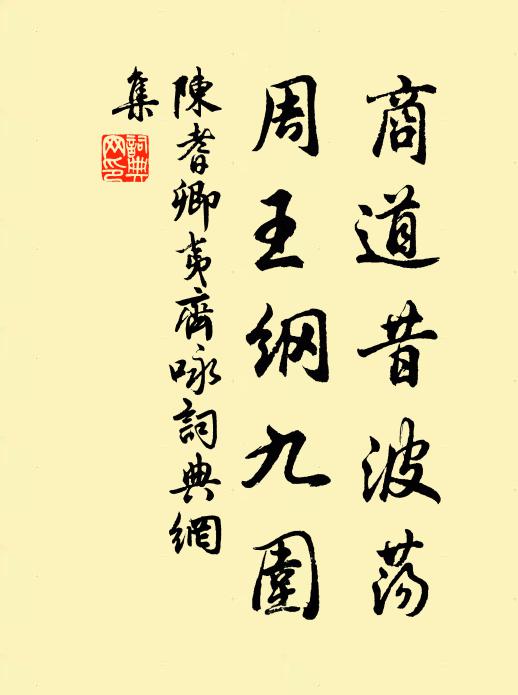 商道昔波荡
周王纲九圍
陳耆卿夷齊咏詞典網
集
詞典网印